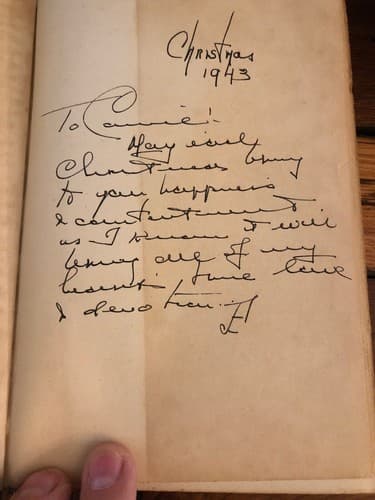 Christmas
1943
To Connie!
May each
Christmas bring
to you happiness
& contentment
as I know it will
bring all of my
heart's true love
& devotion.